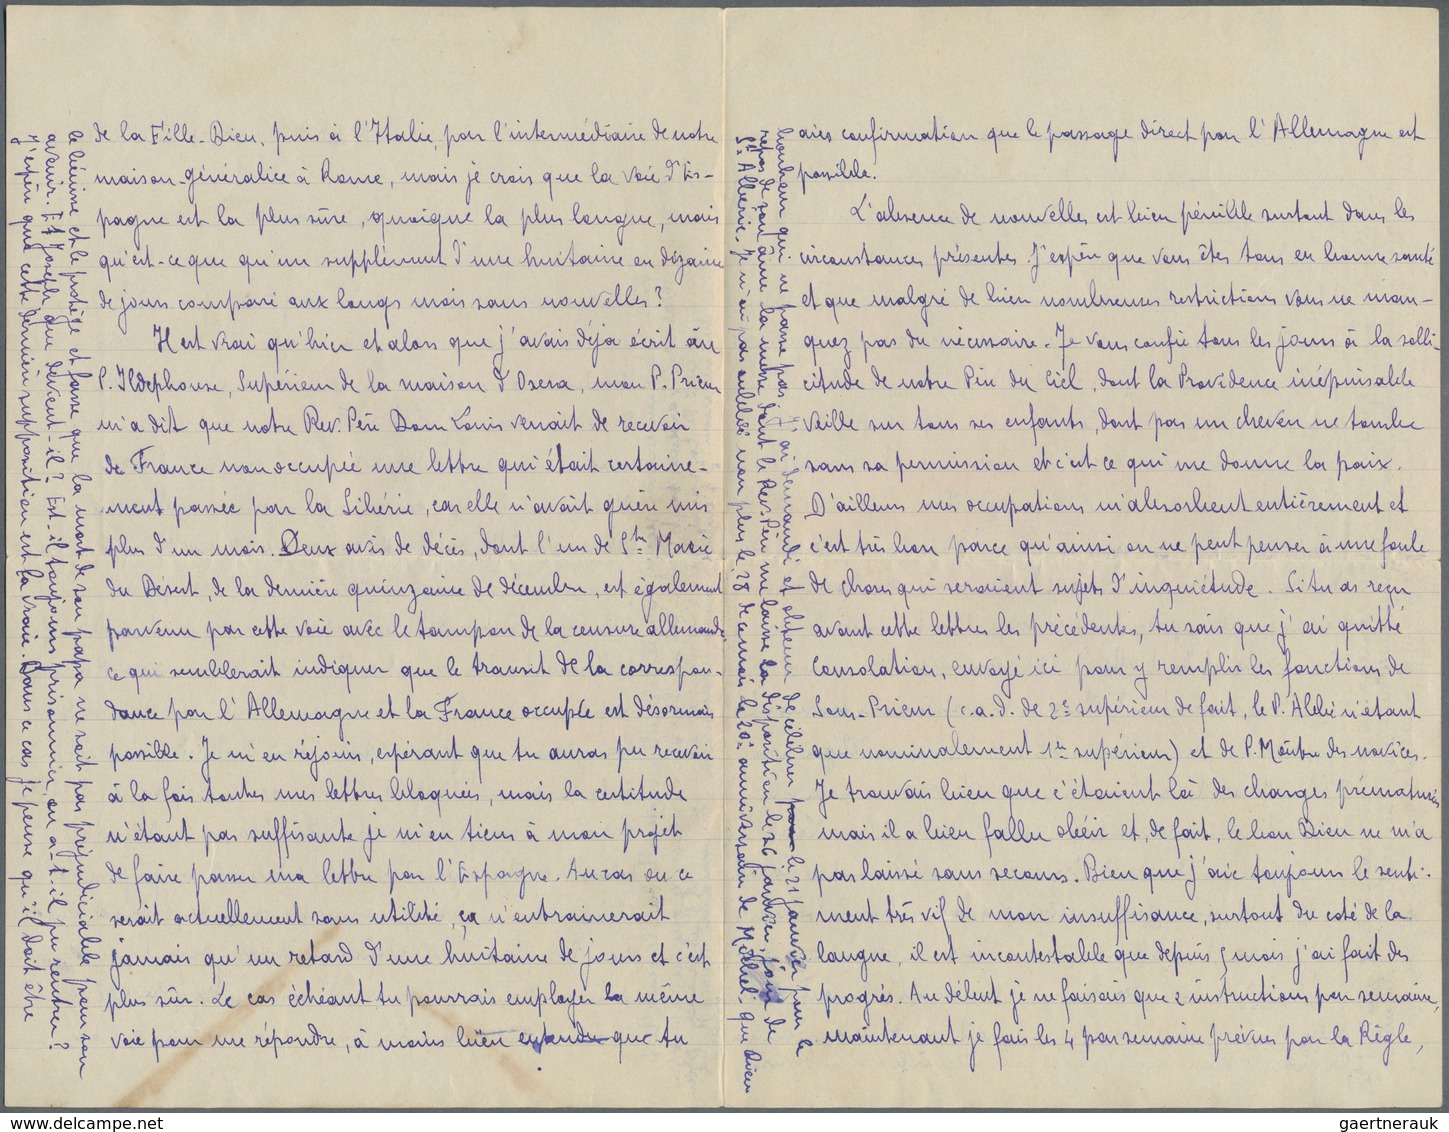 de la Fille-Dieu, puis à l'Italie, par l'intermédiaire de notre
maison généralice à Rome, mais je crois que la voie d'Es-
pagne est la plus sûre, quoique la plus longue, mais
qu'est-ce que qu'un supplément d'une huitaine ou dizaine
de jours comparé aux longs mois sans nouvelles?
Il est vrai qu'hier et alors que j'avais déjà écrit au
P. Ildephonse, Supérieur de la maison d'Osera, mon P. Prieur
m'a dit que notre Rev. Père Dom Louis venait de recevoir
de France non occupée une lettre qui était certaine-
ment passée par la Sibérie, car elle n'avait guère mis
plus d'un mois. Deux avis de décès, dont l'un de Ste Marie
du Désert, de la dernière quinzaine de décembre, est également
parvenu par cette voie avec le tampon de la censure allemande,
ce qui semblerait indiquer que le transit de la correspon-
dance par l'Allemagne et la France occupée est désormais
possible. Je m'en réjouis, espérant que tu auras pu recevoir
à la fois toutes mes lettres bloquées, mais la certitude
n'étant pas suffisante je m'en tiens à mon projet
de faire passer ma lettre par l'Espagne. Au cas où ce
serait actuellement sans utilité, ça n'entrainerait
jamais qu'un retard d'une huitaine de jours et c'est
plus sûr. Le cas échéant tu pourrais employer la même
voie pour me répondre, à moins bien entendu que tu
le bénisse et le protège et fasse que la mort de son papa ne soit pas préjudiciable pour son
avenir. Et Joseph que devient-il? Est-il toujours prisonnier, ou a-t-il pu rentrer?
J'espère que cette dernière supposition est la vraie. Dans ce cas je pense qu'il doit être
aies confirmation que le passage direct par l'Allemagne est
possible.
L'absence de nouvelles est bien pénible surtout dans les
circonstances présentes. J'espère que vous êtes tous en bonne santé
et que malgré de bien nombreuses restrictions vous ne man-
quez pas du nécessaire. Je vous confie tous les jours à la solli-
citude de notre Père du Ciel, dont la Providence inépuisable
veille sur tous ses enfants, dont pas un cheveu ne tombe
sans sa permission et c'est ce qui me donne la paix.
D'ailleurs mes occupations m'absorbent entièrement et
c'est très bon parce qu'ainsi on ne peut penser à une foule
de choses qui seraient sujets d'inquiétude. Si tu as reçu
avant cette lettres les précédentes, tu sais que j'ai quitté
Consolation, envoyé ici pour y remplir les fonctions de
Sous-Prieur (c.a.d. de 2e supérieur de fait, le P. Abbé n'étant
que nominalement 1er supérieur) et de P. Maître des novices.
Je trouvais bien que c'étaient là des charges prématurées
mais il a bien fallu obéir et, de fait, le bon Dieu ne m'a
pas laissé sans secours. Bien que j'aie toujours le senti-
ment très vif de mon insuffisance, surtout du coté de la
langue, il est incontestable que depuis 5 mois j'ai fait des
progrès. Au début je ne faisais que 2 instructions par semaine,
maintenant je fais les 4 par semaine prévues par la Règle,
bonheur qui ne passe pas. J'ai demandé et obtenu de célébrer le 21 janvier pour le
repos de son âme la messe dont le Rev. Père me laisse la disposition le 26 janvier, jour de
St Albéric. Je n'ai pas oublié non plus le 28 décembre le 20e anniversaire de Michel, que Dieu
gaertnerauk